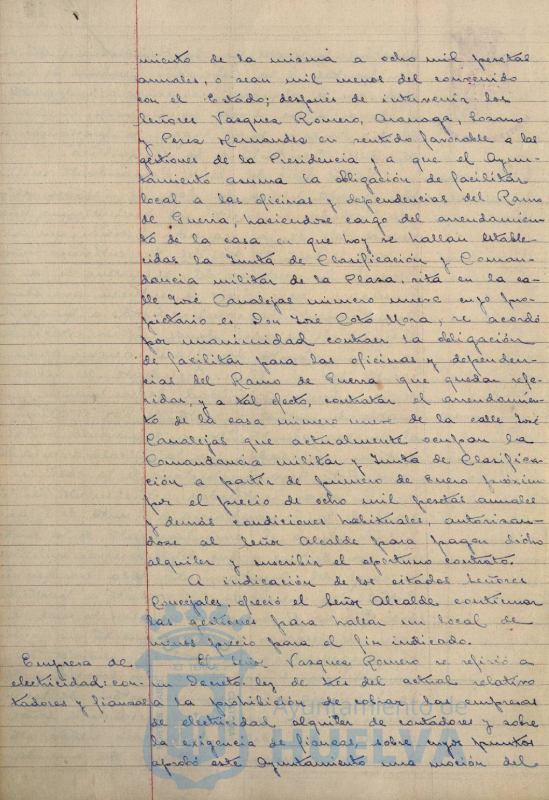 miento de la misma a ocho mil pesetas
anuales, o sean mil menos del convenido
con el Estado; después de intervenir los
Señores Vasquez Romero, Aranaga, Lozano
y Perez Hernandez en sentido favorable a las
gestiones de la Presidencia y a que el Ayun-
tamiento asuma la obligación de facilitar
local a las oficinas y dependencias del Ramo
de Guerra, haciendose cargo del arrendamien-
to de la casa en que hoy se hallan estable-
cidas la Junta de Clasificación y Coman-
dancia militar de la Plaza, sita en la ca-
lle José Canalejas número nueve cuyo pro-
pietario es Don José Coto Mora, se acordó
por unanimidad contraer la obligación
de facilitar para las oficinas y dependen-
cias del Ramo de Guerra que quedan refe-
ridas, y a tal efecto, contratar el arrendamien-
to de la casa número nueve de la calle José
Canalejas que actualmente ocupan la
Comandancia militar y Junta de Clasifica-
ción a partir de primero de Enero próximo
por el precio de ocho mil pesetas anuales
y demás condiciones habituales, autorizan-
dose al Señor Alcalde para pagar dicho
alquiler y suscribir el oportuno contrato.
A indicación de los citados Señores
Concejales ofreció el Señor Alcalde continuar
las gestiones para hallar un local de
menos precio para el fin indicado.
Empresa de
electricidad: con-
tadores y fianzas
El Señor Vasquez Romero se refirió a
un Decreto-ley de tres del actual relativo
a la prohibición de cobrar las empresas
de electricidad alquiler de contadores y sobre
la exigencia de fianzas, sobre cuyos puntos
aprobó este Ayuntamiento una moción del
Ayuntamiento de
HUELVA